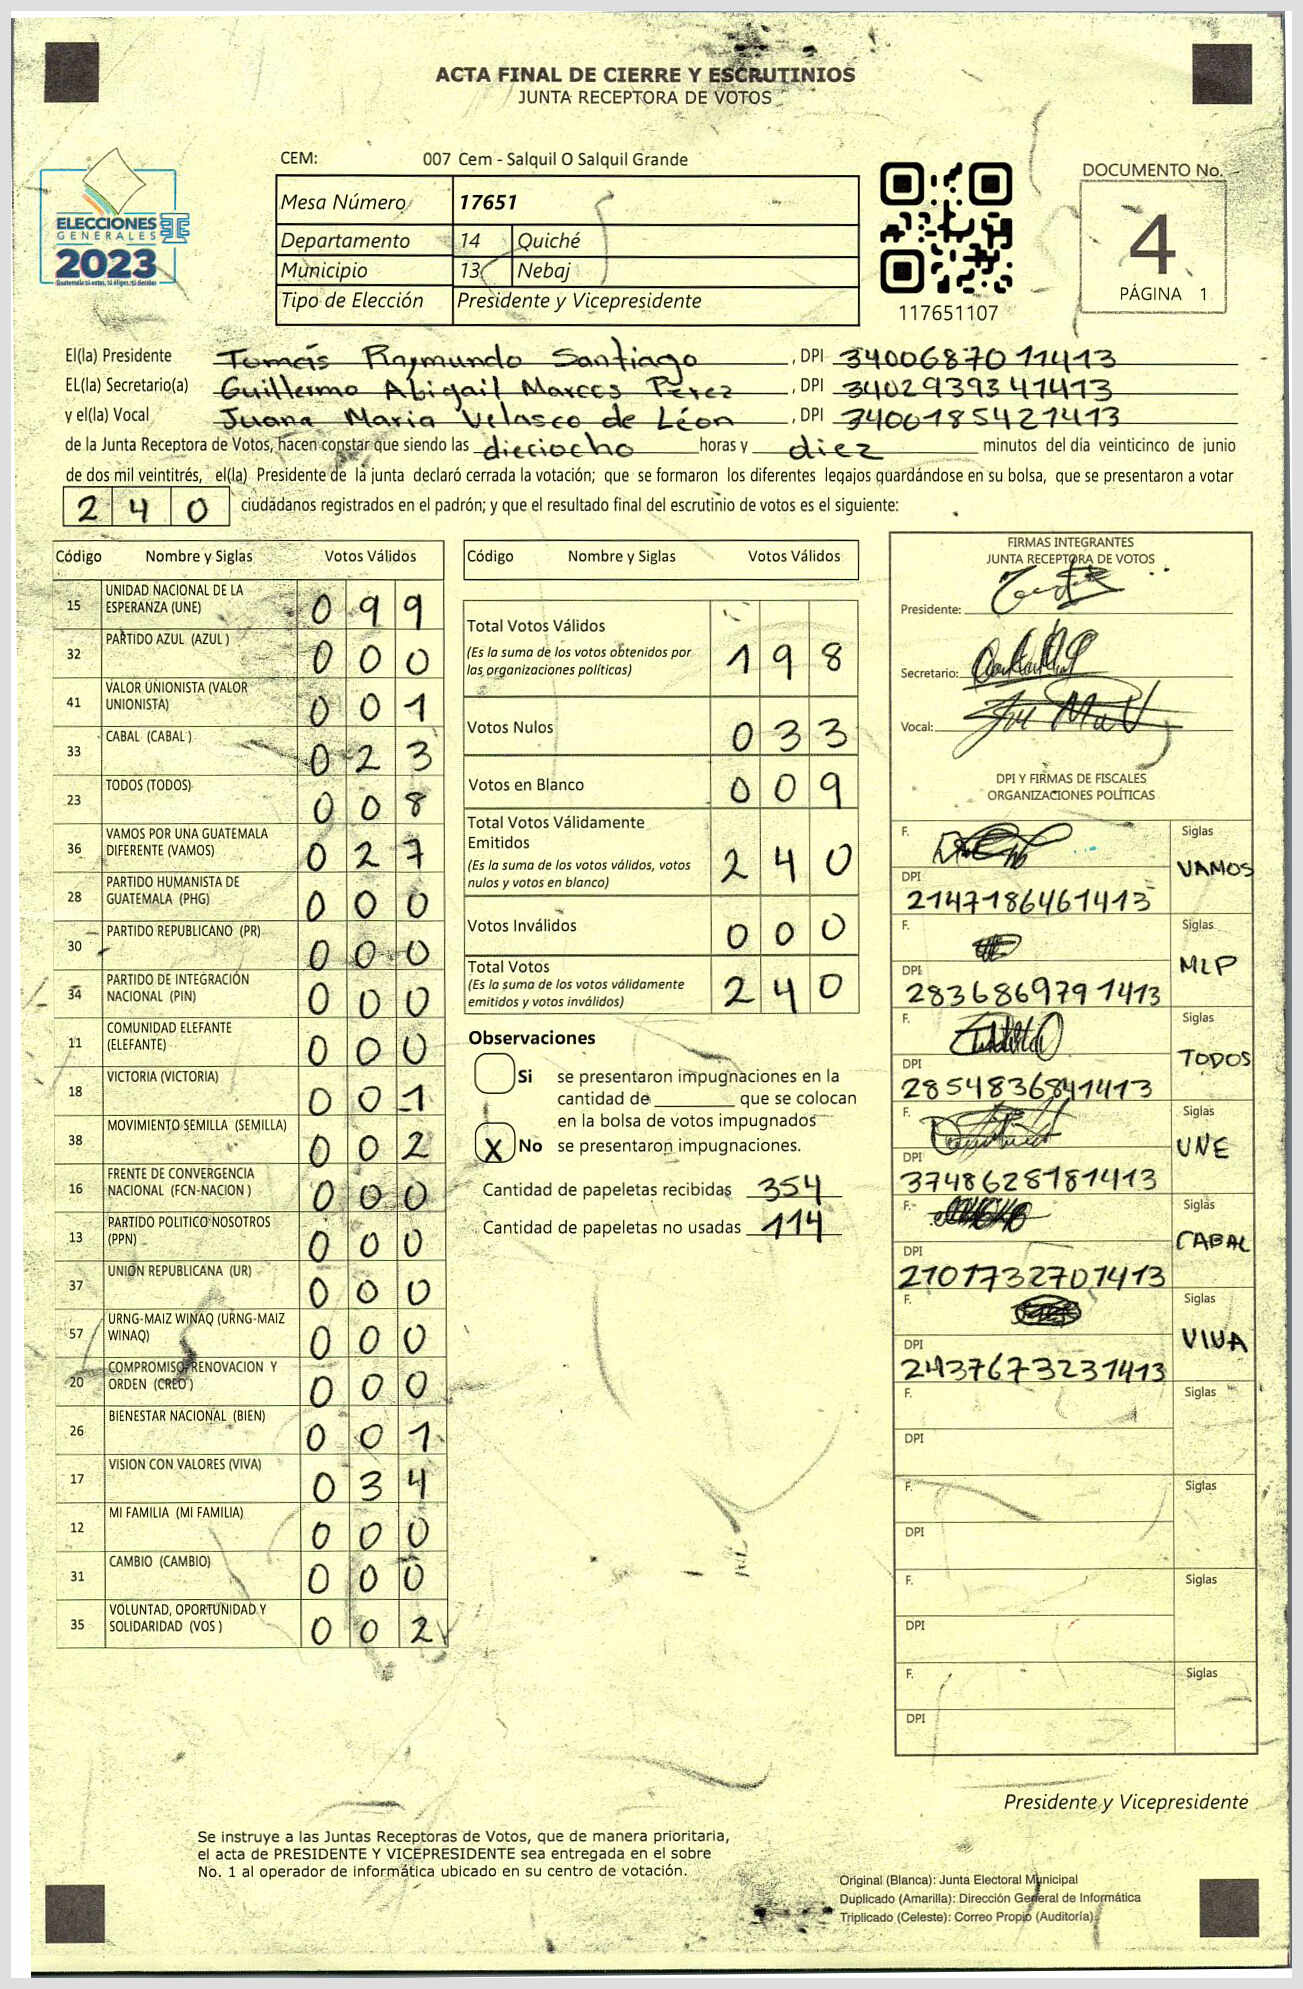 ACTA FINAL DE CIERRE Y ESCRUTINIOS
JUNTA RECEPTORA DE VOTOS
CEM: 007 Cem - Salquil O Salquil Grande
ELECCIONES
GENERALES
2023
Mesa Número 17651
Departamento 14 Quiché
Municipio 13 Nebaj
Tipo de Elección Presidente y Vicepresidente
117651107
DOCUMENTO No.
4
PÁGINA 1
El(la) Presidente Tomás Raymundo Santiago, DPI 3400687011413
EL(la) Secretario(a) Guillermo Abigail Marcos Perez, DPI 3402939341413
y el(la) Vocal Juana Maria Velasco de Léon, DPI 3400185421413
de la Junta Receptora de Votos, hacen constar que siendo las dieciocho horas y diez minutos del día veinticinco de junio
de dos mil veintitrés, el(la) Presidente de la junta declaró cerrada la votación; que se formaron los diferentes legajos guardándose en su bolsa, que se presentaron a votar
240 ciudadanos registrados en el padrón; y que el resultado final del escrutinio de votos es el siguiente:
Código Nombre y Siglas Votos Válidos
15 UNIDAD NACIONAL DE LA ESPERANZA (UNE) 099
32 PARTIDO AZUL (AZUL ) 000
41 VALOR UNIONISTA (VALOR UNIONISTA) 001
33 CABAL (CABAL ) 023
23 TODOS (TODOS) 008
36 VAMOS POR UNA GUATEMALA DIFERENTE (VAMOS) 027
28 PARTIDO HUMANISTA DE GUATEMALA (PHG) 000
30 PARTIDO REPUBLICANO (PR) 000
34 PARTIDO DE INTEGRACIÓN NACIONAL (PIN) 000
11 COMUNIDAD ELEFANTE (ELEFANTE) 000
18 VICTORIA (VICTORIA) 001
38 MOVIMIENTO SEMILLA (SEMILLA) 002
16 FRENTE DE CONVERGENCIA NACIONAL (FCN-NACION ) 000
13 PARTIDO POLITICO NOSOTROS (PPN) 000
37 UNION REPUBLICANA (UR) 000
57 URNG-MAIZ WINAQ (URNG-MAIZ WINAQ) 000
20 COMPROMISO, RENOVACION Y ORDEN (CREO ) 000
26 BIENESTAR NACIONAL (BIEN) 001
17 VISION CON VALORES (VIVA) 034
12 MI FAMILIA (MI FAMILIA) 000
31 CAMBIO (CAMBIO) 000
35 VOLUNTAD, OPORTUNIDAD Y SOLIDARIDAD (VOS ) 002
Código Nombre y Siglas Votos Válidos
Total Votos Válidos 198
(Es la suma de los votos obtenidos por
las organizaciones políticas)
Votos Nulos 033
Votos en Blanco 009
Total Votos Válidamente
Emitidos 240
(Es la suma de los votos válidos, votos
nulos y votos en blanco)
Votos Inválidos 000
Total Votos 240
(Es la suma de los votos válidamente
emitidos y votos inválidos)
Observaciones
Si se presentaron impugnaciones en la
cantidad de ________ que se colocan
en la bolsa de votos impugnados
X No se presentaron impugnaciones.
Cantidad de papeletas recibidas 354
Cantidad de papeletas no usadas 114
FIRMAS INTEGRANTES
JUNTA RECEPTORA DE VOTOS
Presidente:
Secretario:
Vocal:
DPI Y FIRMAS DE FISCALES
ORGANIZACIONES POLÍTICAS
F. Siglas VAMOS
DPI 2147186461413
F. Siglas MLP
DPI 2836869791413
F. Siglas TODOS
DPI 2854836841413
F. Siglas UNE
DPI 3748628181413
F. Siglas CABAL
DPI 2101732701413
F. Siglas VIVA
DPI 2437673231413
F. Siglas
DPI
F. Siglas
DPI
F. Siglas
DPI
F. Siglas
DPI
Presidente y Vicepresidente
Se instruye a las Juntas Receptoras de Votos, que de manera prioritaria,
el acta de PRESIDENTE Y VICEPRESIDENTE sea entregada en el sobre
No. 1 al operador de informática ubicado en su centro de votación.
Original (Blanca): Junta Electoral Municipal
Duplicado (Amarilla): Dirección General de Informática
Triplicado (Celeste): Correo Propio (Auditoría)